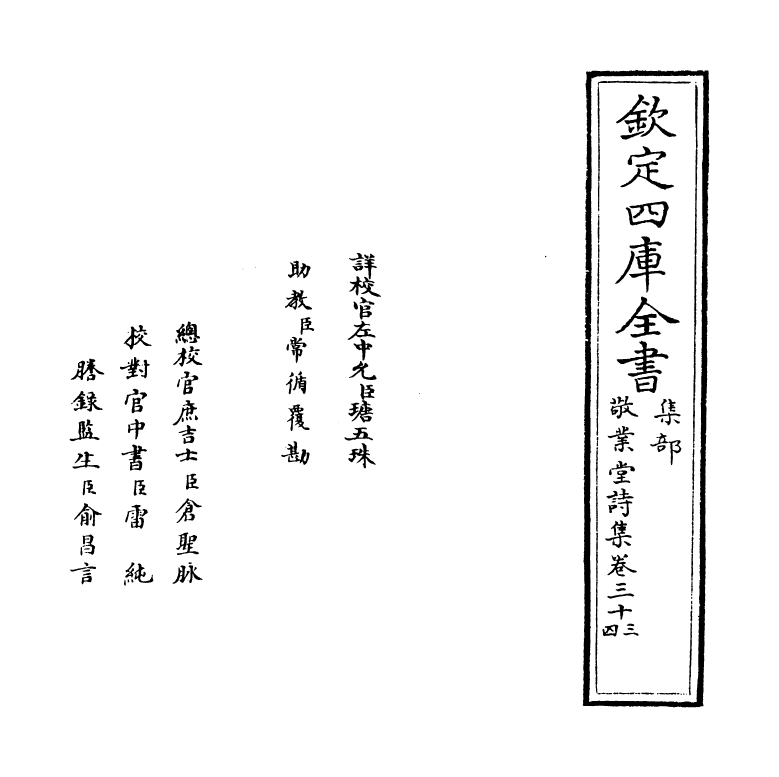 欽定四庫全書
集部
敬業堂詩集卷三十三四
詳校官左中允臣瑭五珠
助教臣常循覆勘
總校官庶吉士臣倉聖脉
校對官中書臣雷純
謄錄監生臣俞昌言